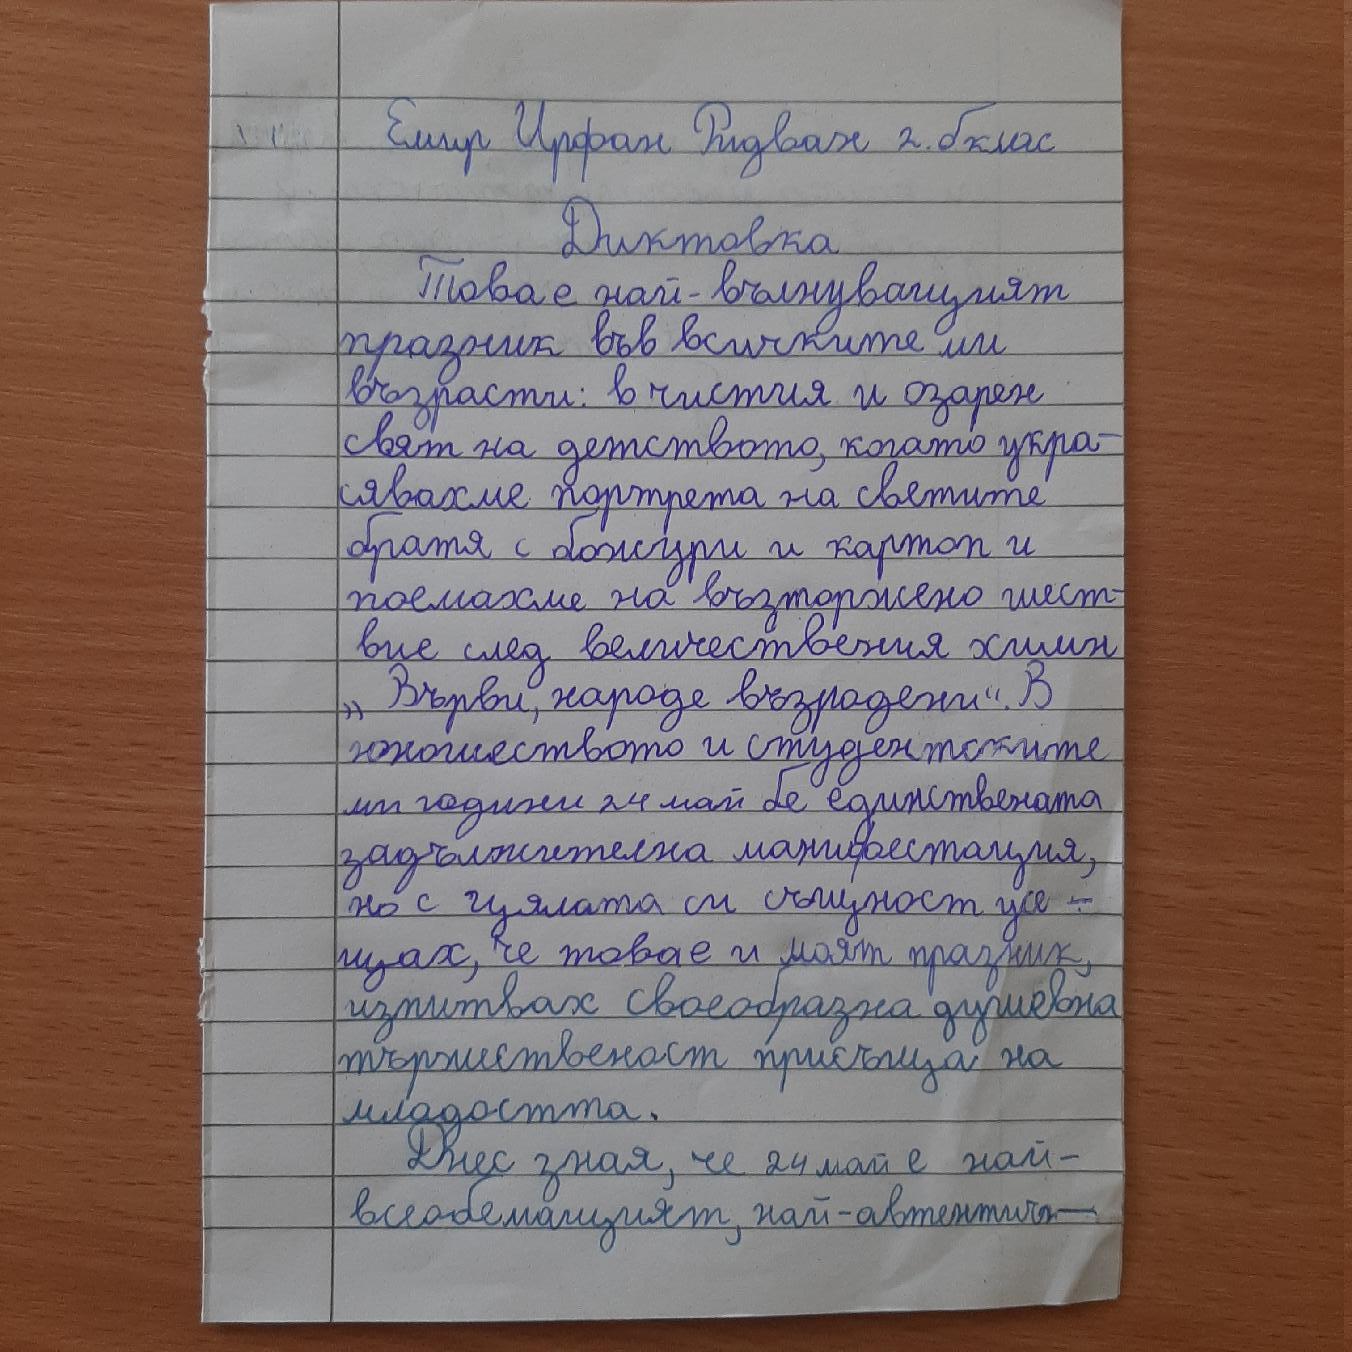 Емир Ирфан Ридван 2. б клас
Диктовка
Това е най-вълнуващият
празник във всичките ми
възрасти: в чистия и озарен
свят на детството, когато укра-
сявахме портрета на светите
братя с божури и картоп и
поемахме на възторжено шест-
вие след величествения химн
„Върви, народе възрадени“. В
юношеството и студентските
ми години 24 май бе единствената
задължителна манифестация,
но с цялата си същност усе-
щах, че това е и моят празник,
изпитвах своеобразна душевна
тържественост присъща на
младостта.
Днес зная, че 24 май е най-
всеобемащият, най-автентичн-